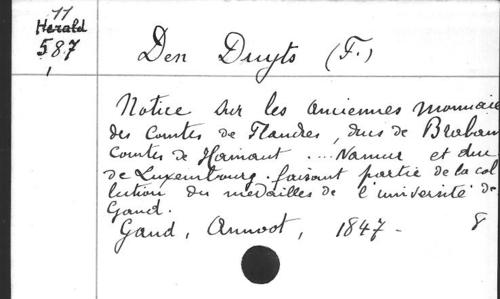 11
Herald
587
Den Duyts (F.)
Notice sur les anciennes monnaie
des comtes de Flandres, ducs de Braban
comtes de Hainaut .... Namur et duc
de Luxembourg. faisant partie de la col
lection des médailles de l'université de
Gand.
Gand, Annoot, 1847 - 8